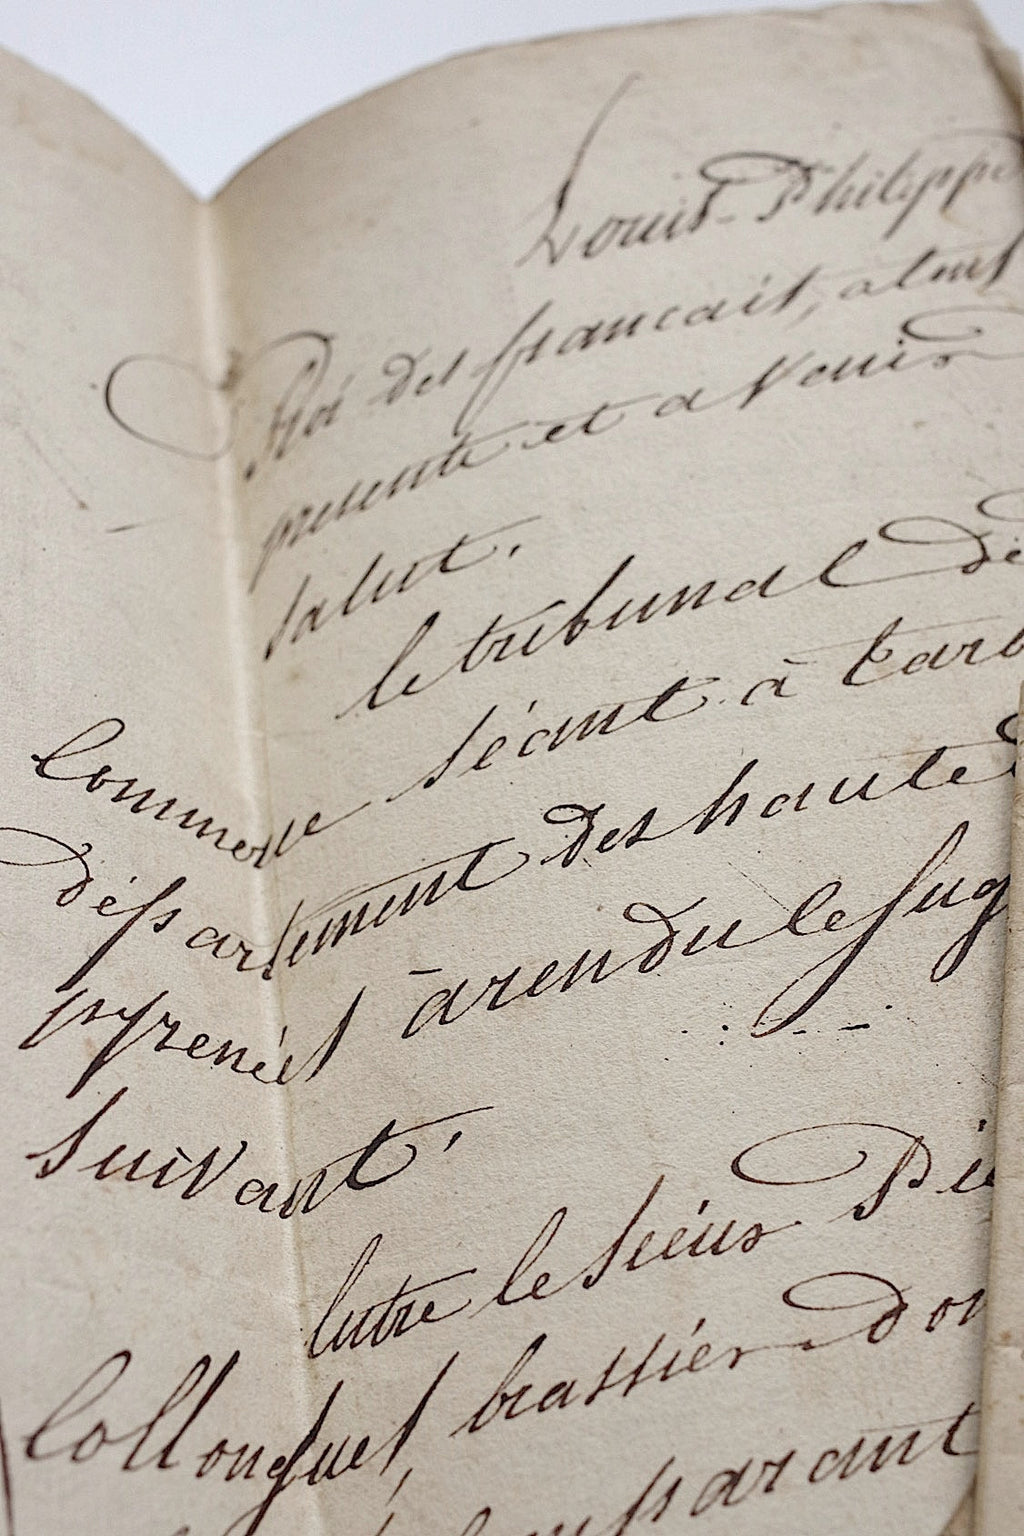 Louis-Philippe
Roi des francais, a tous
presents et a venir
salut.
le tribunal de
Commerce séant à tarb
département des haute
pyrenées à rendu le jug
suivant,
Entre le sieur Pie
Collongues, brassier dom
comparant